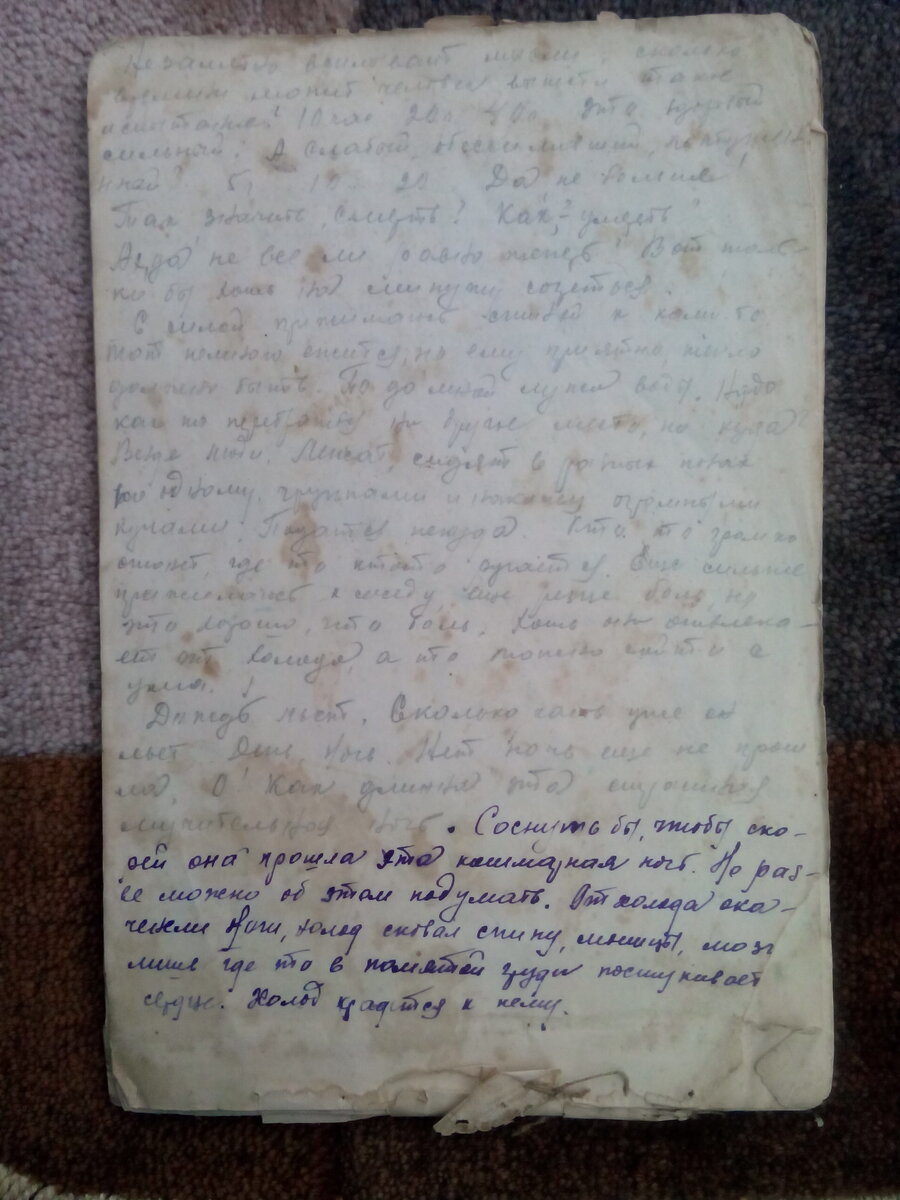 Незаметно всплывают мысли, сколько
времени может человек вынести такие
испытания? 10 20 40 это здоровый
сильный. А слабый, обессилевший,
5, 10 20 Да не больше!
Так значить смерть? Как? умереть?
не все ли равно теперь! Вот толь-
ко бы хоть на минуту согреться.
С силой прижимаюсь спиной к кому то
тот немного ежится, но ему приятно, тепло
должно быть. Подо мной лужа воды. Надо
как то перебраться на другое место, но куда?
Везде люди. Лежат, сидят в разных позах
по одному, группами и наконец огромными
кучами. Податься некуда. Кто то громко
стонет, где то кто то ругается. Еще сильнее
прижимаюсь к соседу еще резче боль, но
это хорошо, что боль. Хоть она отвлека-
ет от холода, а то можно сойти с
ума.
Дождь льет. Сколько часов уже он
льет День, Ночь. Нет ночь еще не прош
ла. О! Как длинна эта страшная
мучительная ночь. Соснуть бы, чтобы ско-
рей она прошла эта кошмарная ночь. Но раз-
ве можно об этом подумать. От холода ока-
ченели Ноги, холод сковал спину, мышцы, мозг
лишь где то в помятой груди постукивает
сердце. Холод крадется к нему.